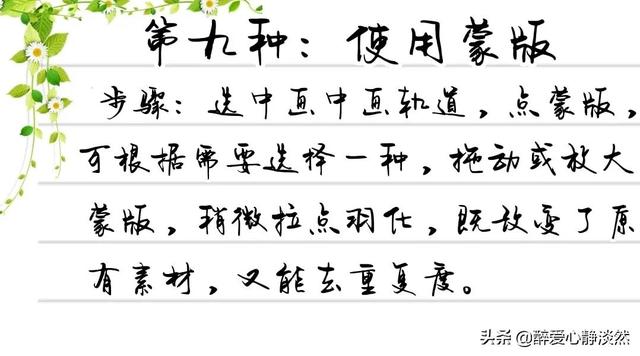 第九种：使用蒙版
步骤：选中画中画轨道，点蒙版，
可根据需要选择一种，拖动或放大
蒙版，稍微拉点羽化，既改变了原
有素材，又能去重复度。
头条 @醉爱心静淡然